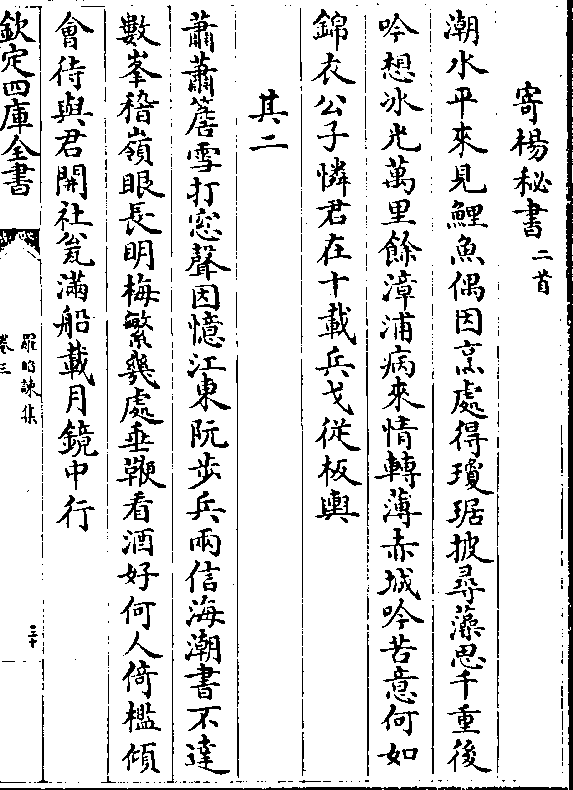 寄楊秘書二首
潮水平來見鯉魚偶因烹處得瓊琚披尋藻思千重後
吟想冰光萬里餘漳浦病來情轉薄赤城吟苦意何如
錦衣公子憐君在十載兵戈從板輿
其二
蕭蕭簷雪打窓聲因憶江東阮步兵兩信海潮書不達
數峯稽嶺眼長明梅繁幾處垂鞭看酒好何人倚檻傾
會待與君開社瓮滿船載月鏡中行
欽定四庫全書
羅昭諫集
卷三
二十